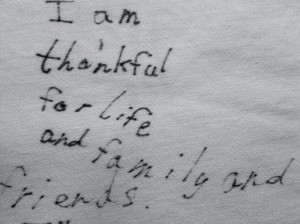 I am
thankful
for life
and family and
friends.